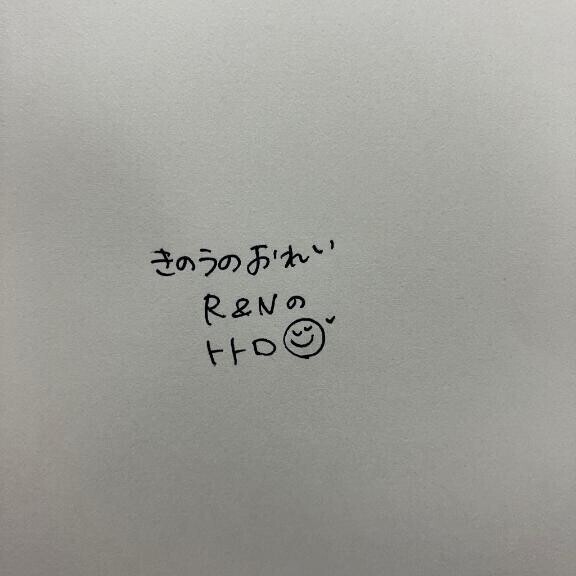 きのうのおれい
R&Nの
トトロ